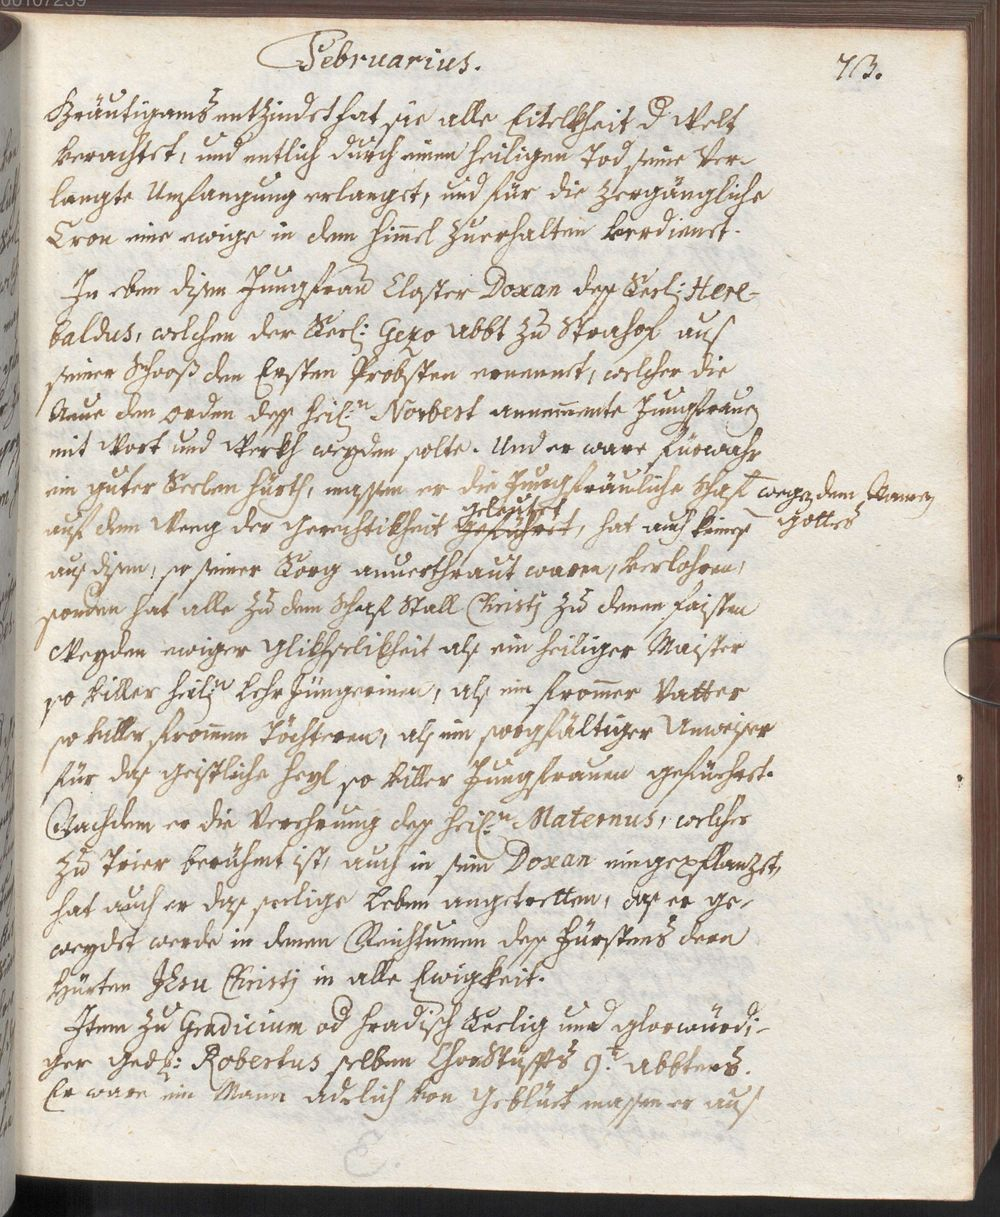 00107239
Februarius. 713.
Bräutigams entzindet hat sie alle Eitelkheit d Welt
verachtet, und entlich durch einen heiligen Tod seine Ver-
langte Umfangung erlanget, und für die Zergängliche
Cron eine ewige in dem Himel zuerhalten verdienet.
In eben disem Jungfrau Closter Doxan des Seel: Here-
baldus, welchen der Seel: Gezo Abbt zu Strahof aus
seiner Schooß den Ersten Probsten ernennet, welcher die
Neue den orden des heil:n Norbert annemmente Jungfrauen
mit Wort und Werkh weyden solte. Und er ware fürwahr
ein guter Seelen hürth, massen er die Jungfräuliche Schaf wegen dem Namen
geleutet
auf dem Weeg der Gerechtikheit geführet, hat auch keines Gottes
aus disen, so seiner Sorg anuerthraut waren, verlohren,
sonden hat alle zu dem Schaf Stall Christj zu denen faisten
Weyden ewiger Glikhselikheit als ein heiliger Maister
so viller heilgn Lehr Jüngerinen, als ein fromer Vatter
so viller fromen Töchteren, als ein sorgfältiger Unweiser
für das geistliche Heyl so viller Jungfrauen geführet.
Nachdem er die Verehrung des heil:n Maternus, welcher
zu Trier berühmt ist, auch in sein Doxan eingepflanzet,
hat auch er das seelige Leben angetretten, das er ge-
weydet werde in denen Reichtumen des Fürstens deren
Hürten JEsu Christj in alle Ewigkheit.
Item zu Gradicium od Hradisch Seelig und glorwürdi-
ger Ged: Robertus selben Chor Stüffts 9t. Abbtens.
Er ware ein Mann Adelich von Geblüet massen er aus